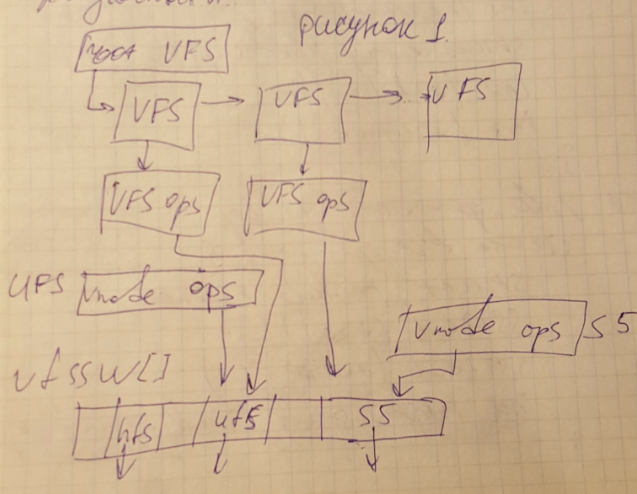 рисунок 1.
root VFS
VFS VFS VFS
VFS ops VFS ops
UFS vnode ops
vnode ops S5
vfssw[]
nfs ufs S5